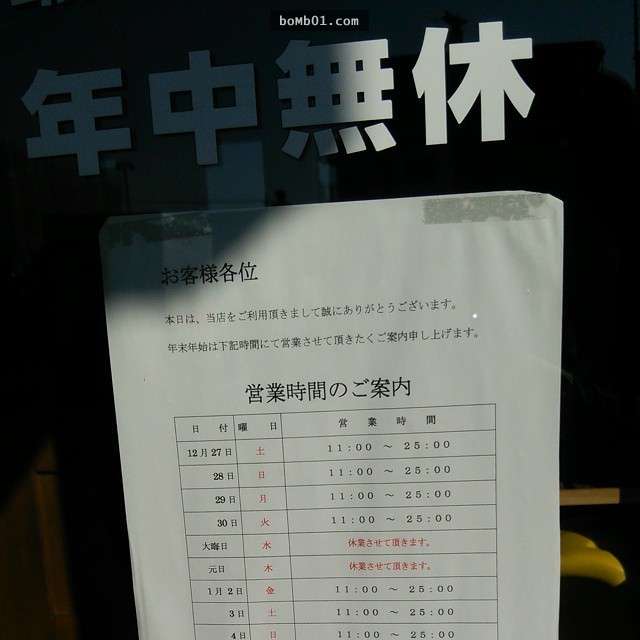 boMb01.com
年中無休
お客様各位
本日は、当店をご利用頂きまして誠にありがとうございます。
年末年始は下記時間にて営業させて頂きたくご案内申し上げます。
営業時間のご案内
日 付 曜 日 営 業 時 間
12月27日 土 11:00 ~ 25:00
28日 日 11:00 ~ 25:00
29日 月 11:00 ~ 25:00
30日 火 11:00 ~ 25:00
大晦日 水 休業させて頂きます。
元日 木 休業させて頂きます。
1月 2日 金 11:00 ~ 25:00
3日 土 11:00 ~ 25:00
4日 日 11:00 ~ 25:00